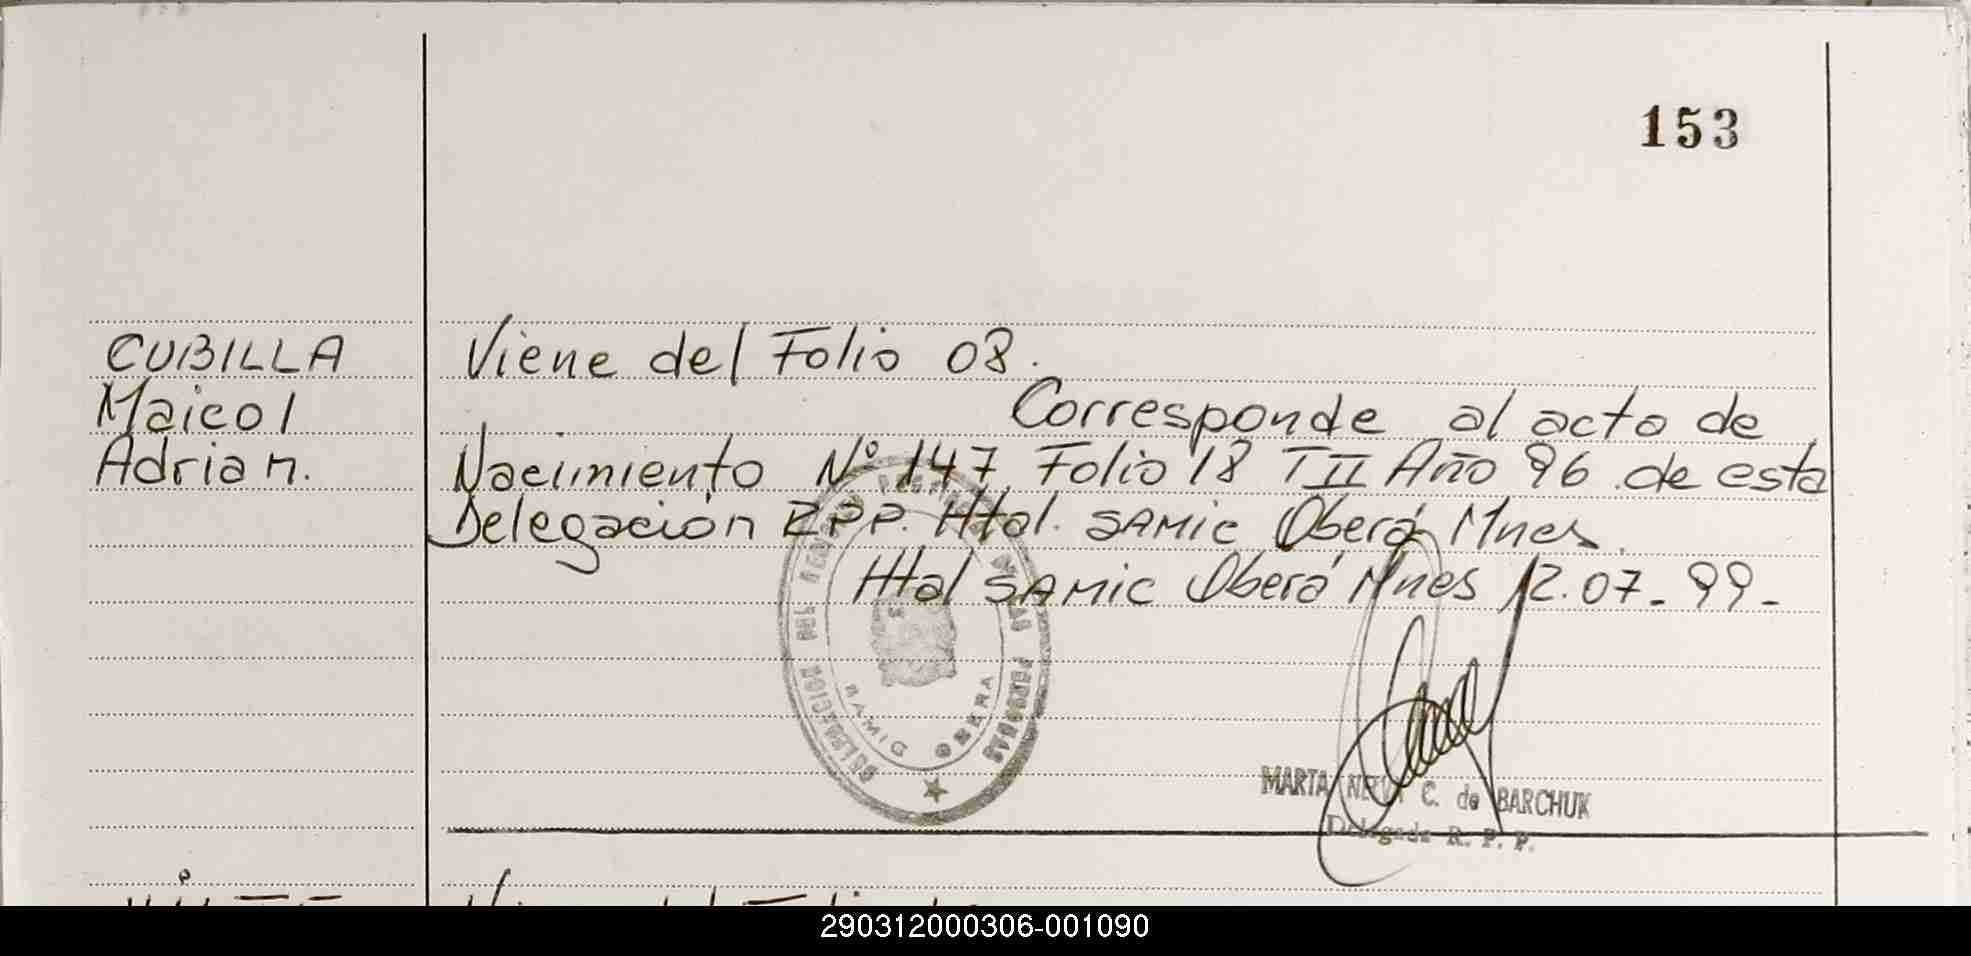 153
CUBILLA
Maicol
Adrian.
Viene del Folio 08.
Corresponde al acto de
Nacimiento Nº 147, Folio 18 TII Año 96 de esta
Delegación RPP. Htal. SAMIC Oberá Mnes.
Htal SAMIC Oberá Mnes 12.07-99-
DELEGACION DEL
SAMIC OBERA
MARTA C. de BARCHUK
Delegada R. P. P.
290312000306-001090